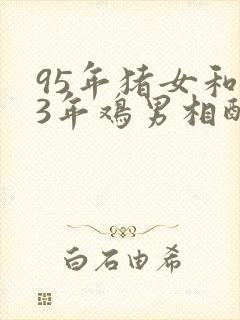 95年猪女和
3年鸡男相配
白石由希